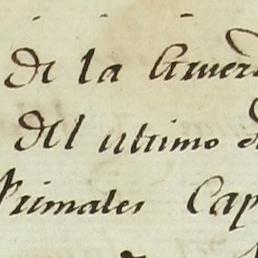 de la Guer
del ultimo d
Primales Cap